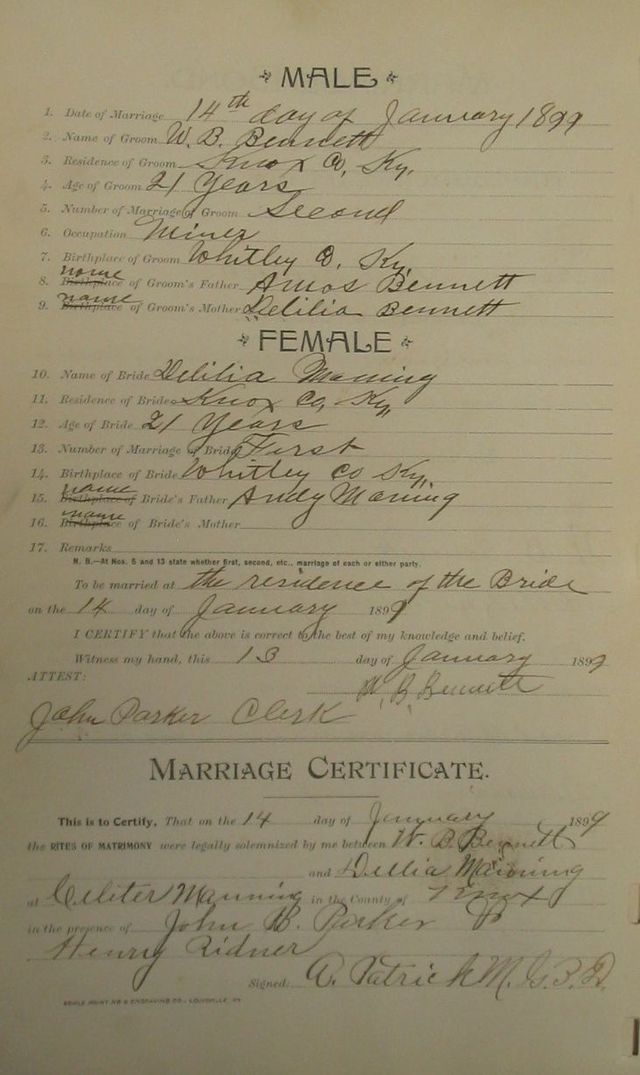 MALE
1. Date of Marriage 14th day of January 1899
2. Name of Groom W. B. Bennett
3. Residence of Groom Knox Co, Ky.
4. Age of Groom 21 Years
5. Number of Marriage of Groom Second
6. Occupation Miner
7. Birthplace of Groom Whitley Co. Ky.
name
8. Birthplace of Groom's Father Amos Bennett
name
9. Birthplace of Groom's Mother Delilia Bennett
FEMALE
10. Name of Bride Delilia Maning
11. Residence of Bride Knox Co, Ky,
12. Age of Bride 21 Years
13. Number of Marriage of Bride First
14. Birthplace of Bride Whitley Co Ky,
name
15. Birthplace of Bride's Father Andy Maning
name
16. Birthplace of Bride's Mother
17. Remarks
N. B.—At Nos. 5 and 13 state whether first, second, etc., marriage of each or either party.
To be married at the residence of the Bride
on the 14 day of January 1899
I CERTIFY that the above is correct to the best of my knowledge and belief.
Witness my hand, this 13 day of January 1899
ATTEST: W. B Bennett
John Parker Clerk
MARRIAGE CERTIFICATE.
This is to Certify, That on the 14 day of January 1899
the RITES OF MATRIMONY were legally solemnized by me between W. B. Bennett
and Dellia Manning
at Manning in the County of Knox
in the presence of John B. Parker
Henry Ridner
Signed: A. Patrick M. G.